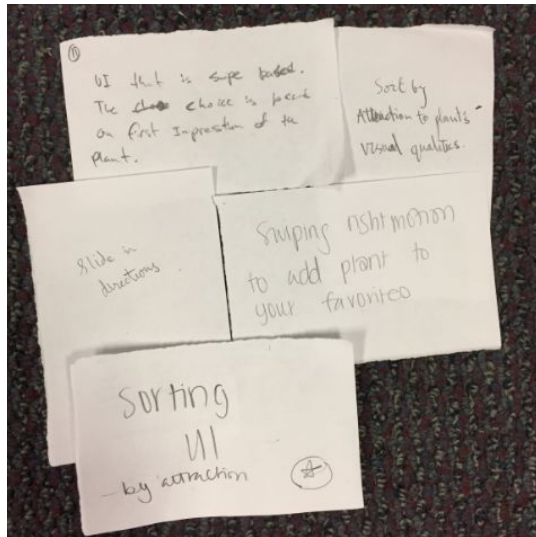 ①
UI that is swipe based.
The choice is based
on first Impression of the
plant.
Sort by
Attraction to plant's
visual qualities.
Slide in
directions.
Swiping right motion
to add plant to
your favorites
Sorting
UI
- by attraction